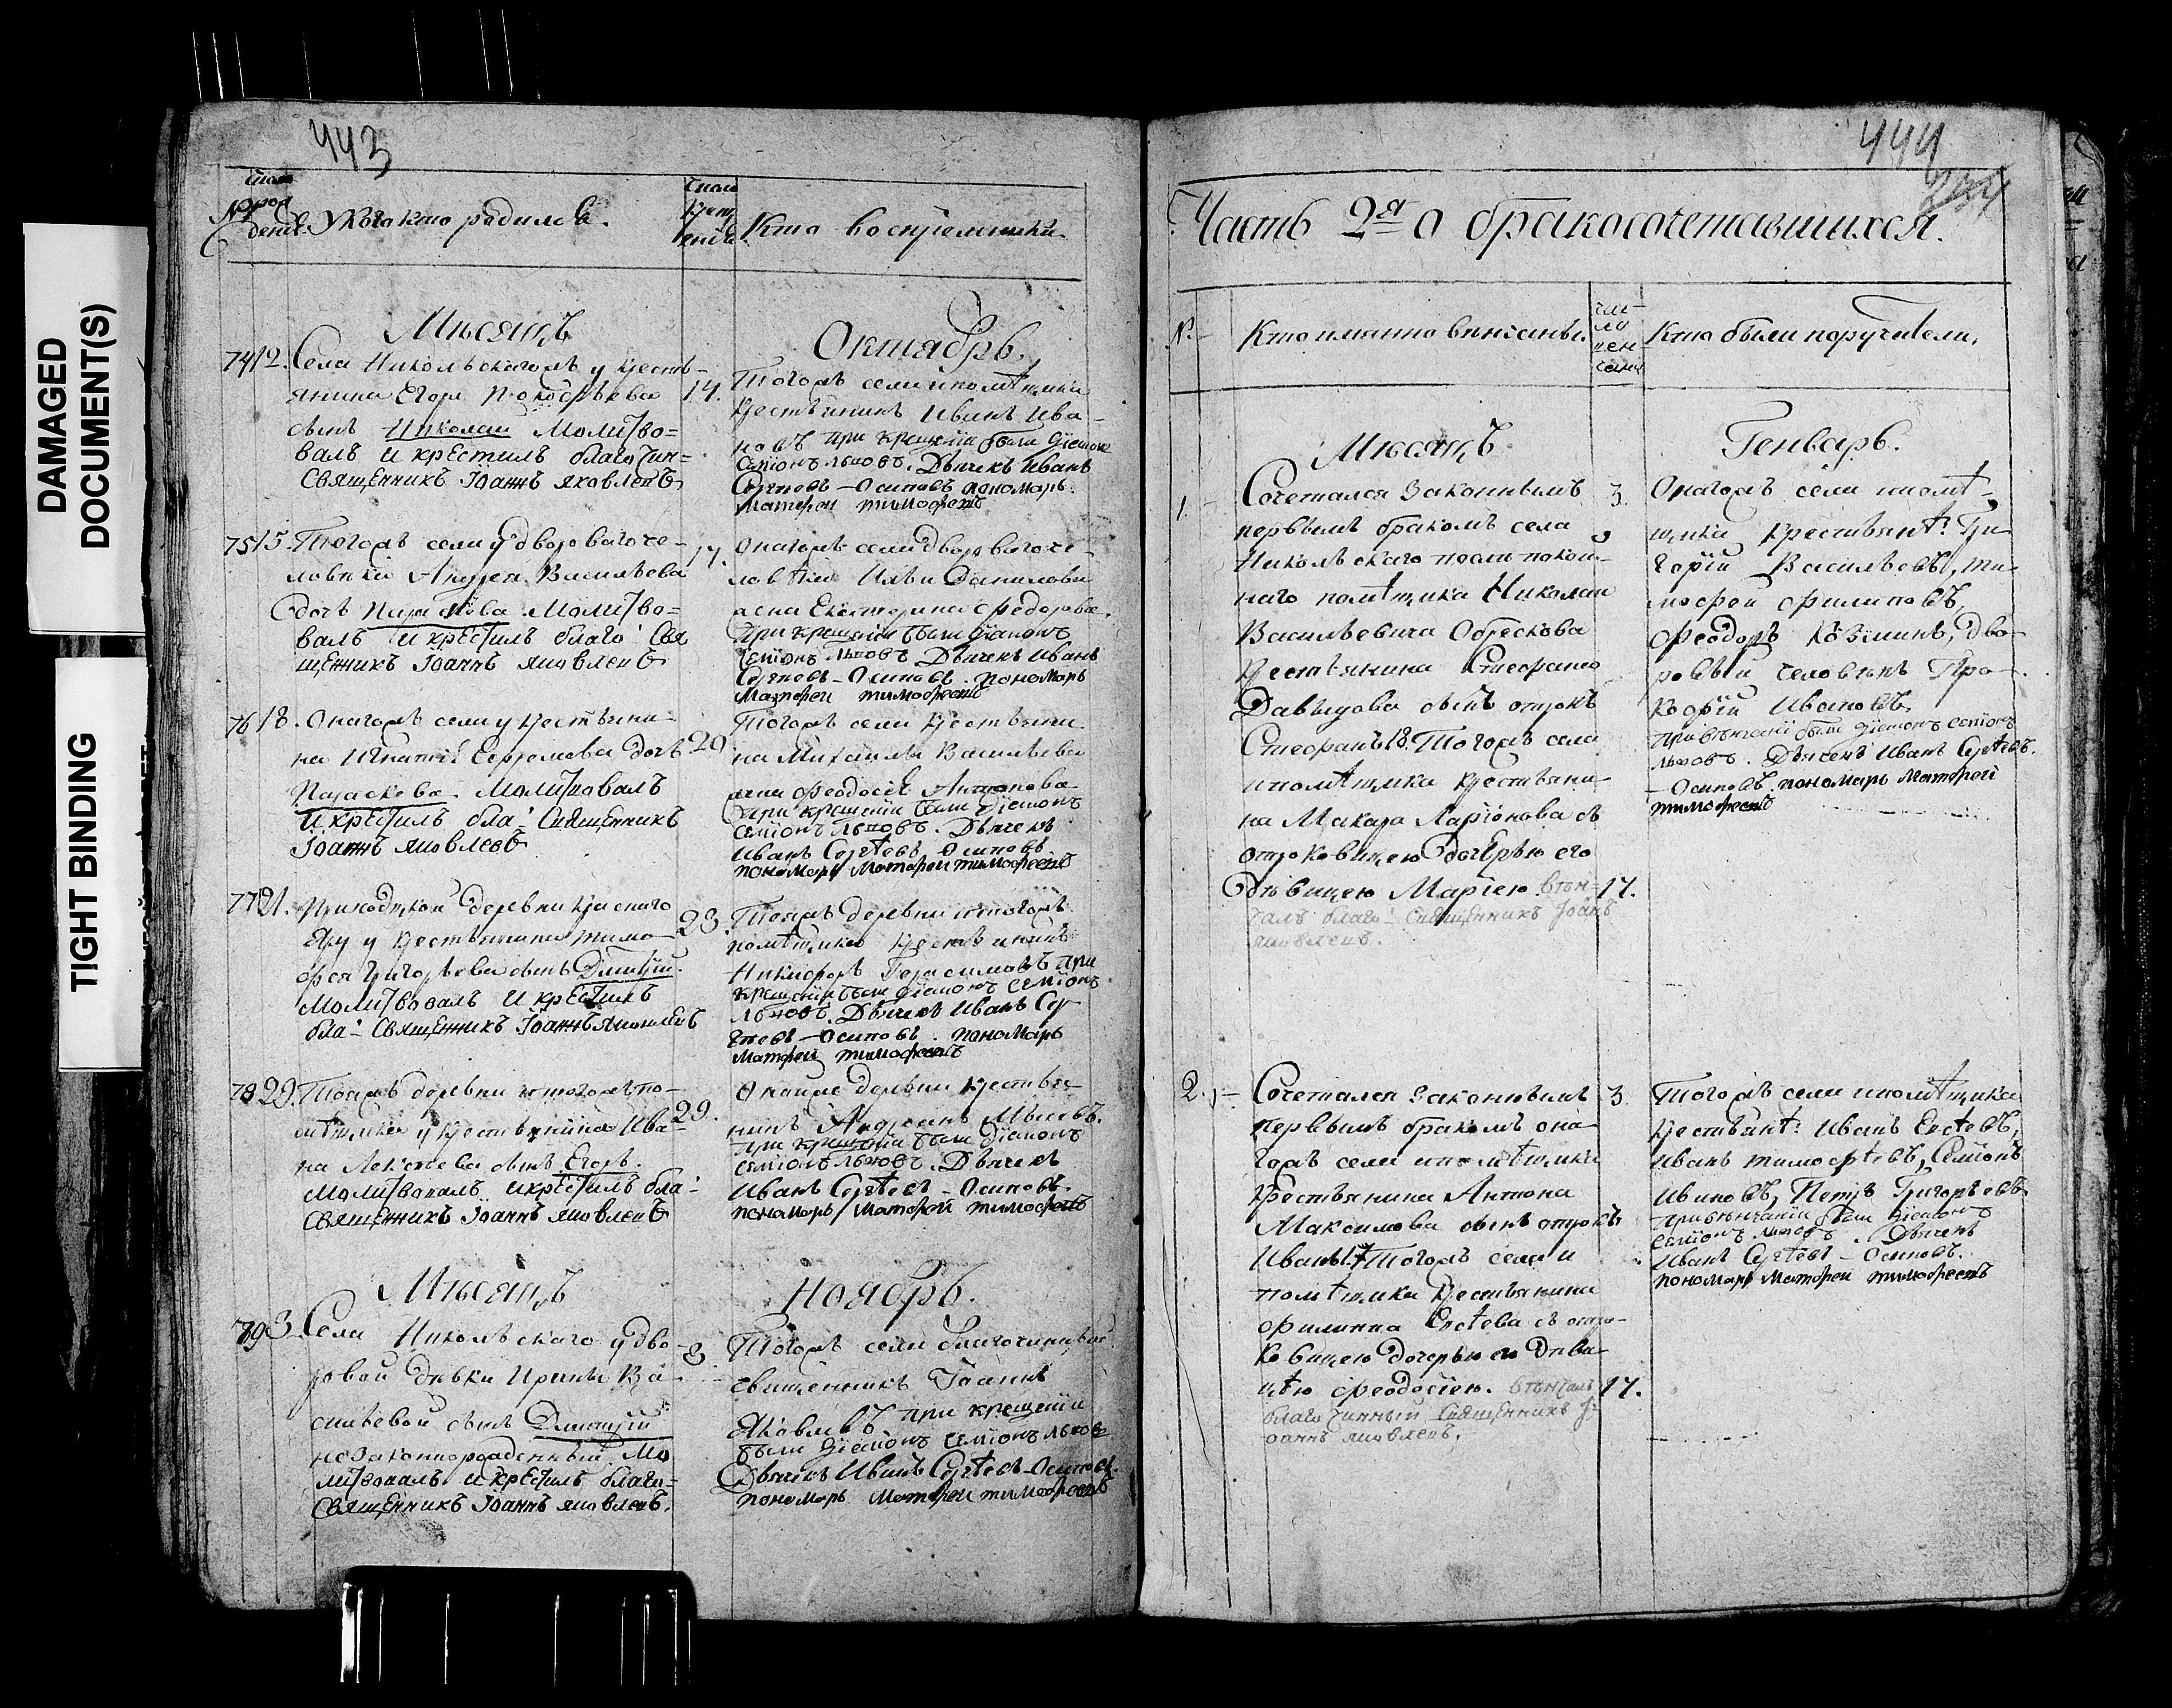 DAMAGED
DOCUMENT(S)
TIGHT BINDING
443
№
У кого кто родился.
Кто восприемники
Мѣсяцъ
Октябрь.
74 12. Села Никольскагожъ у крестья-
нина Егора
сынъ Николай Молитво=
валъ и крѣстилъ благочин=
Священникъ Іоаннъ яковлевъ
14.
Тогожъ села и помѣщика
крестьянинъ Иванъ Ива-
новъ при крещеніи были діаконъ
семіонъ львовъ. Дьячекъ Иванъ
Сергѣевъ – Осиповъ пономарь
Матфеи тимофеевъ
75 15. Тогожъ села у двороваго че-
ловѣка Андрея Васильева
дочь Параскева Молитво=
валъ и крѣстилъ благо: Свя
щенникъ Іоаннъ яковлевъ
17.
Онагожъ села двороваго че-
ловѣка Ильи Данилова
жена Екатерина федорова.
При крещеніи были діаконъ
семіонъ львовъ Дьячекъ Иванъ
Сергѣевъ – Осиповъ. пономарь
Матфеи тимофеевъ
76 18. Онагожъ села у крестьяни-
на Игнатія дочь
Параскева. Молитвовалъ
и крѣстилъ бла: Священникъ
Іоаннъ яковлевъ
20.
Тогожъ села крестьяни-
на Михаила Васильева
жена феодосія Антонова
при крещеніи были діаконъ
семіонъ львовъ. Дьячекъ
Иванъ Сергѣевъ Осиповъ
пономарь Матфеи тимофеевъ
77 21. Приходской деревни краснаго
Яру у крестьянина тимо-
фея григорьева сынъ Дмитрій.
Молитвовалъ и крѣстилъ
бла: Священникъ Іоаннъ яковлевъ
23.
Тояжъ деревни и тогожъ
помѣщика крестьянинъ
Никифоръ Герасимовъ при
крещеніи были діаконъ семіонъ
львовъ. Дьячекъ Иванъ Сер
гѣевъ – Осиповъ. пономарь
Матфеи тимофеевъ
78 29. Тояжъ деревни и тогожъ по-
мѣщика у крестьянина Ива-
на сынъ Егоръ.
Молитвовалъ и крѣстилъ бла:
священникъ Іоаннъ яковлевъ
29.
Оныяже деревни крестья-
нинъ
при крещеніи были діаконъ
семіонъ львовъ. Дьячекъ
Иванъ Сергѣевъ – Осиповъ.
пономарь Матфеи тимофеевъ
Мѣсяцъ
Ноябрь.
79 3. Села Никольскаго у дво-
ровой дѣвки Ирины Ва-
сильевой сынъ Дмитрій
незаконнорожденный. Мо
литвовалъ и крѣстилъ благо-
священникъ Іоаннъ яковлевъ.
8.
Тогожъ села благочинный
священникъ Іоаннъ
Яковлевъ при крещеніи
были діаконъ семіонъ львовъ
Дьячекъ Иванъ Сергѣевъ Осиповъ.
пономарь Матфеи тимофеевъ
444
Часть 2я о бракосочетавшихся.
№
Кто имянно вѣнчаны.
Кто были поручители,
Мѣсяцъ
Генварь.
1. Сочетался законнымъ
первымъ бракомъ села
Никольскаго послѣ покой-
наго помѣщика Николая
Васильевича Обрескова
крестьянина Стефана
Давыдова сынъ отрокъ
Стефанъ 18. Тогожъ села
и помѣщика крестьяни-
на Макара Ларіонова съ
отроковицею дочерью его
дѣвицею Маріею вѣн- 17.
чалъ благо: Священникъ Іоаннъ
яковлевъ.
3.
Онагожъ села и помѣ-
щика крестьянѣ: Гри-
горій Васильевъ, ти-
мофей филиповъ,
феодоръ Козминъ, дво-
ровый человѣкъ Про-
кофій Ивановъ
При вѣнчаніи были діаконъ семіонъ
львовъ. Дьячекъ Иванъ Сергѣевъ.
– Осиповъ. пономарь Матфеи
тимофеевъ
2. Сочетался законнымъ
первымъ бракомъ она-
гожъ села и помѣщика
крестьянина Антона
Максимова сынъ отрокъ
Иванъ 17 Тогожъ села и
помѣщика крестьянина
филиппа Евсѣева съ отро-
ковицею дочерью ею дѣви-
цѣю феодосіею. вѣнчалъ 17.
благочинный священникъ І-
оаннъ яковлевъ.
3.
Тогожъ села и помѣщика
крестьянѣ: Иванъ Евсѣевъ,
Иванъ тимофѣевъ, Семіонъ
Ивановъ, Петръ Григорьевъ
При вѣнчаніи были діаконъ
семіонъ львовъ. Дьячекъ
Иванъ Сергѣевъ – Осиповъ.
пономарь Матфеи тимофеевъ